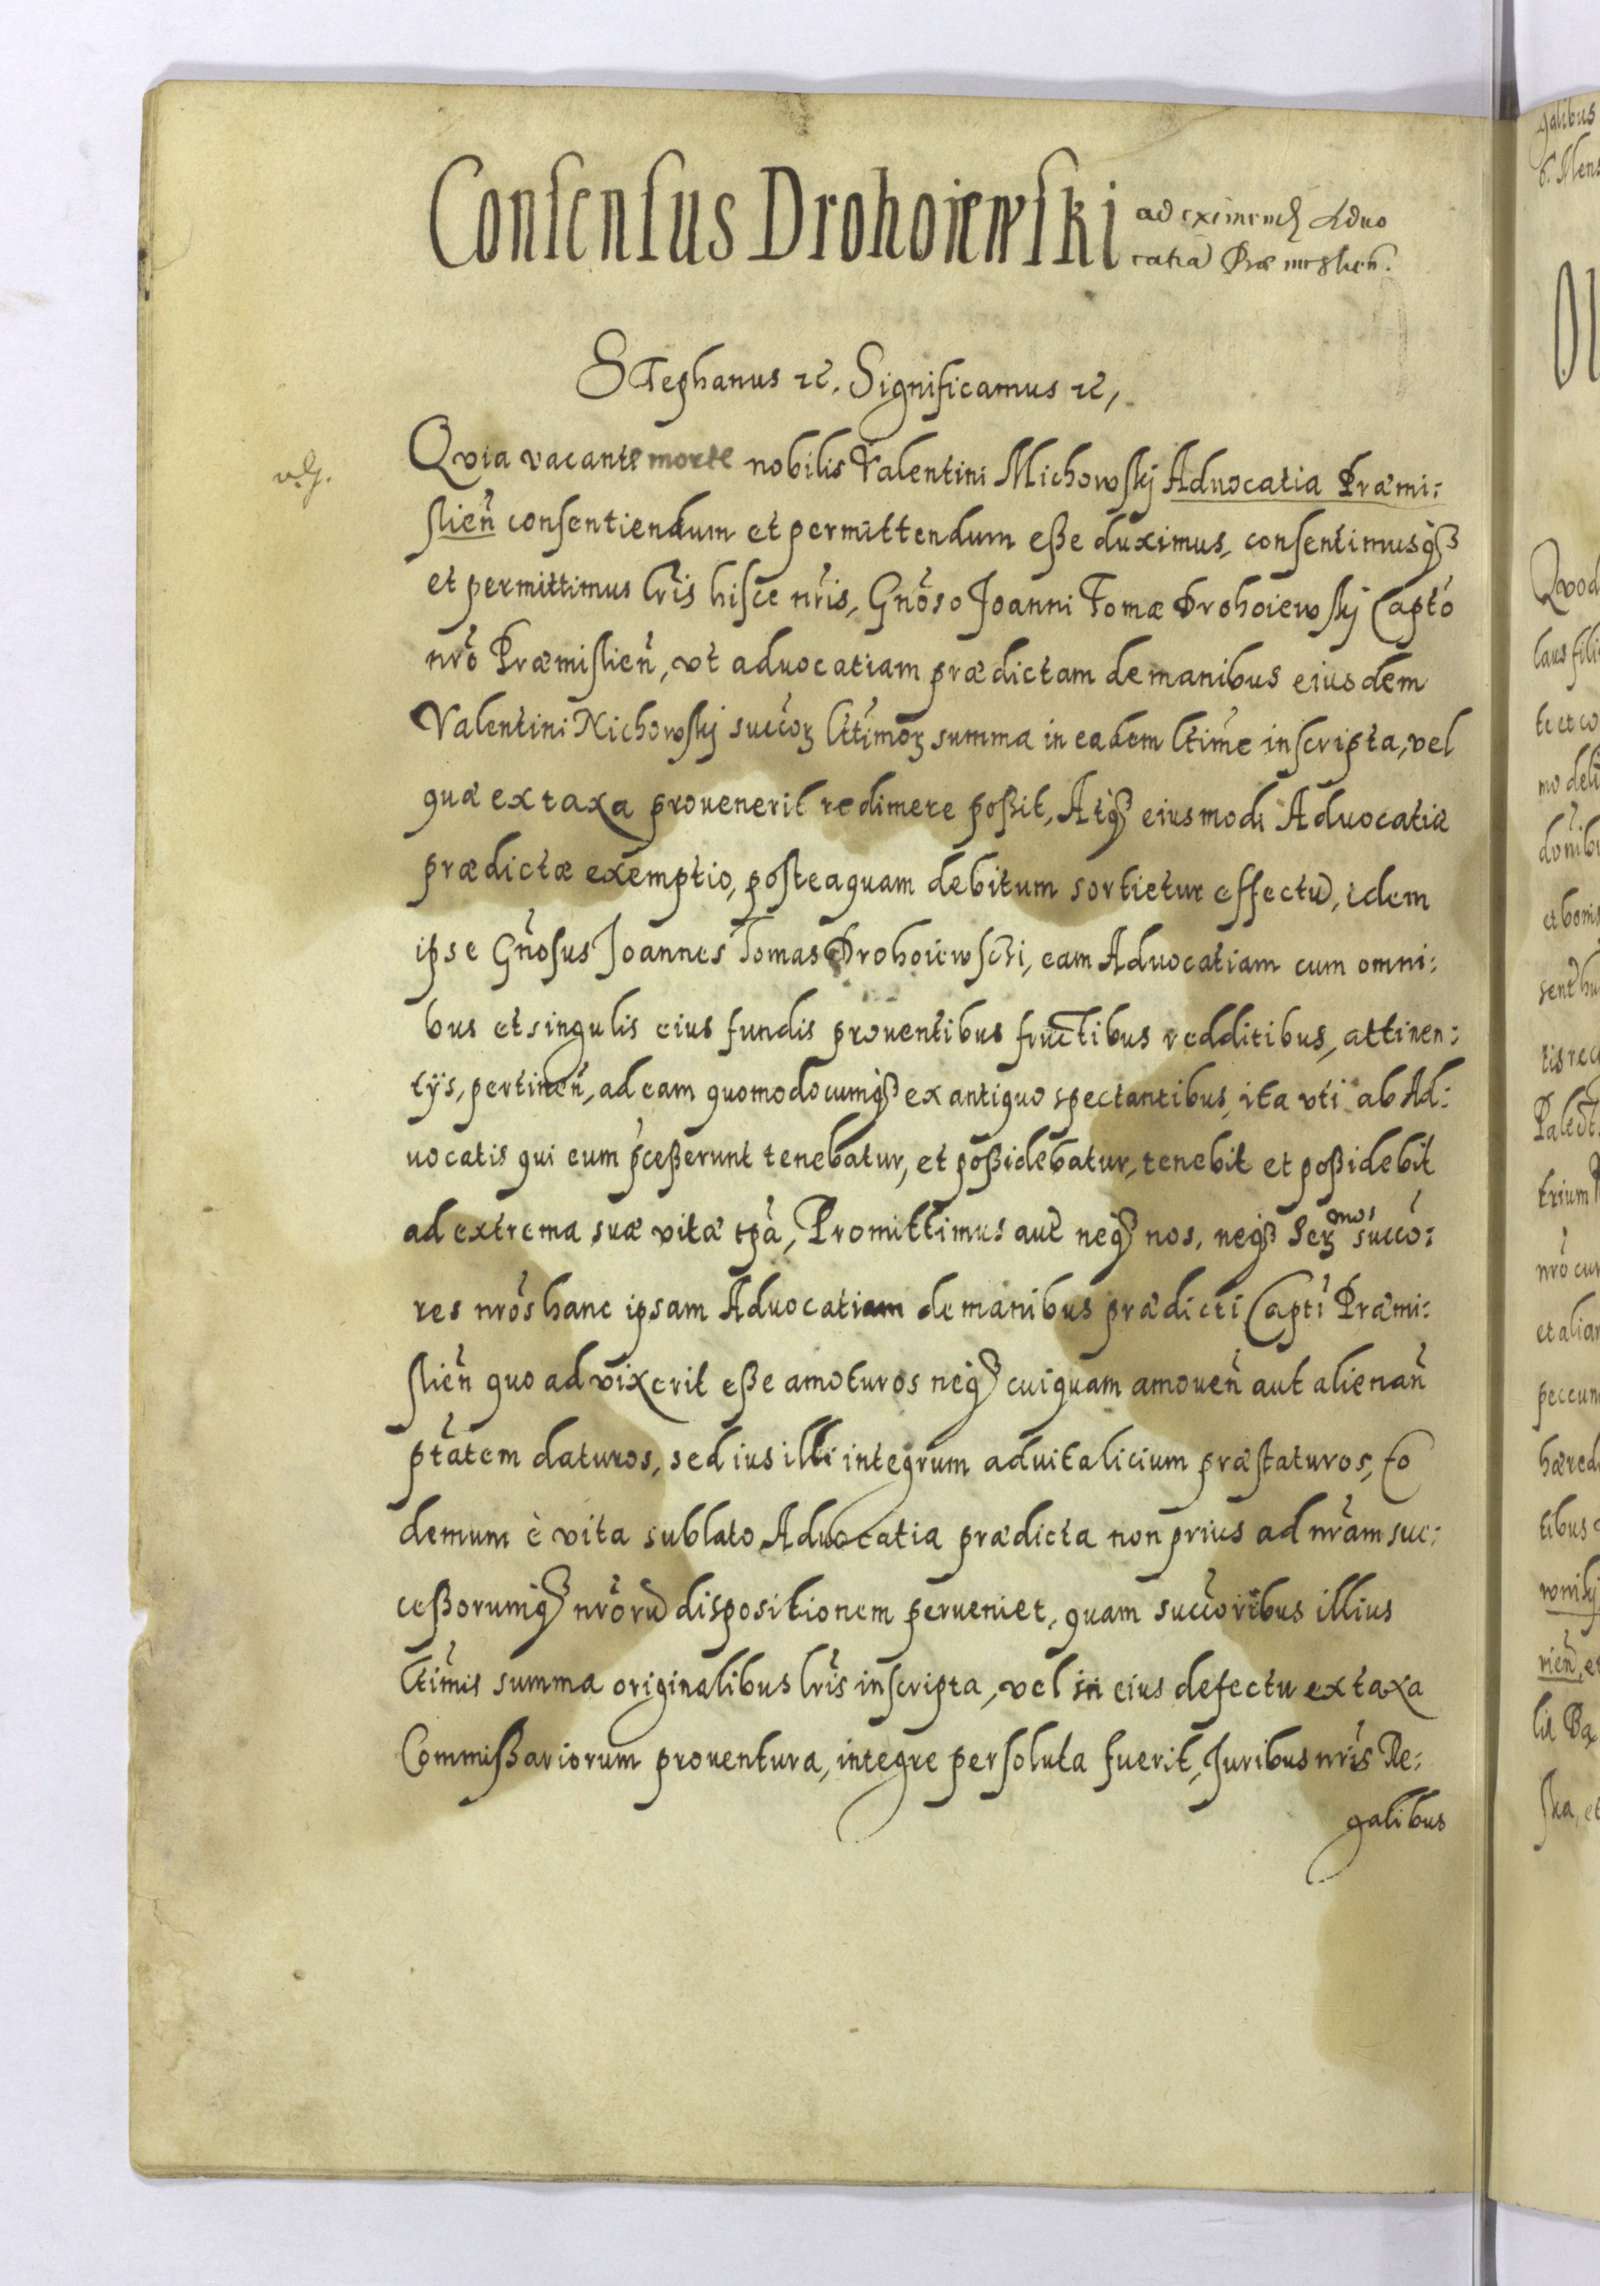 Consensus Drohoiewski ad eximend Aduo
catiā Præmyslien̄.
Stephanus etc. Significamus etc,
Qvia vacante morte nobilis Valentini Michowskj Aduocatia Præmi:
slien̄ consentiendum et permittendum eße duximus, consentimusqȝ
et permittimus lr̄is hisce nr̄is, Gn̄oso Joanni Tomæ Drohoiewskj Capto
nr̄o Præmislien̄, vt aduocatiam prædictam de manibus eiusdem
Valentini Michowskj succoꝝ lt̄timoꝝ summa in eadem lt̄ime inscripta, vel
quæ ex taxa prouenerit redimere poßit, Atqȝ eiusmodi Aduocatiæ
prædictæ exemptio, posteaquam debitum sortietur effectū, idem
ipse Gn̄osus Joannes Tomas Drohoiewski, eam Aduocatiam cum omni:
bus et singulis eius fundis prouentibus fructibus redditibus, attinen:
tijs, pertinen̄, ad eam quomodocumqȝ ex antiquo spectantibus, ita vti ab Ad:
uocatis qui eum p̄ceßerunt tenebatur, et poßidebatur, tenebit et poßidebit
ad extrema suæ vitæ tp̄a, Promittimus aut̄ neqȝ nos, neqȝ Sermos succo:
res nr̄os hanc ipsam Aduocatiam de manibus prædicti Capti Præmi:
slien̄ quo ad vixerit eße amoturos neqȝ cuiquam amouen̄ aut alienan̄
pt̄atem daturos, sed ius illi integrum aduitalicium præstaturos, Eo
demum è vita sublato Aduocatia prædicta non prius ad nr̄am suc:
ceßorumqȝ nr̄orū dispositionem perueniet, quam succoribus illius
lt̄imis summa originalibus lr̄is inscripta, vel in eius defectu ex taxa
Commißariorum prouentura, integre persoluta fuerit, Juribus nr̄is Re:
galibus